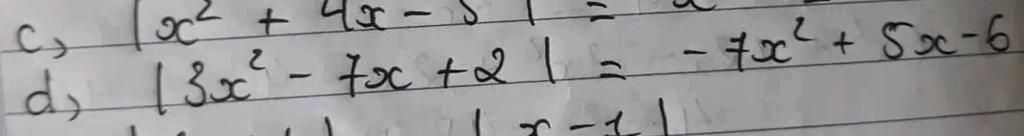 c, |x² + 4x - 5| =
d, |3x² - 7x + 2| = - 7x² + 5x - 6
|x - 1|